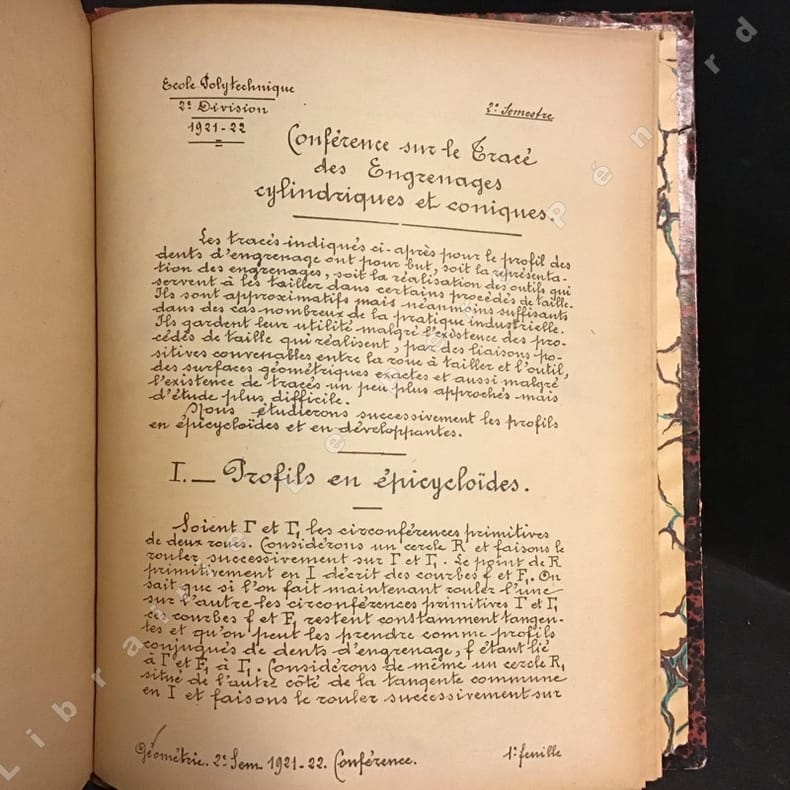 Ecole Polytechnique
2e Division
1921-22
2e Semestre
Conférence sur le Tracé
des Engrenages
cylindriques et coniques.
Les tracés indiqués ci-après pour le profil des
dents d'engrenage ont pour but, soit la représenta-
tion des engrenages, soit la réalisation des outils qui
servent à les tailler dans certains procédés de taille.
Ils sont approximatifs mais néanmoins suffisants
dans des cas nombreux de la pratique industrielle.
Ils gardent leur utilité malgré l'existence des pro-
cédés de taille qui réalisent, par des liaisons po-
sitives convenables entre la roue à tailler et l'outil,
des surfaces géométriques exactes et aussi malgré
l'existence de tracés un peu plus approchés mais
d'étude plus difficile.
Nous étudierons successivement les profils
en épicycloïdes et en développantes.
I._ Profils en épicycloïdes.
Soient Γ et Γ₁ les circonférences primitives
de deux roues. Considérons un cercle R et faisons le
rouler successivement sur Γ et Γ₁. Le point de R
primitivement en I décrit des courbes f et F₁. On
sait que si l'on fait maintenant rouler l'une
sur l'autre les circonférences primitives Γ et Γ₁
ces courbes f et F₁ restent constamment tangen-
tes et qu'on peut les prendre comme profils
conjugués de dents d'engrenage, f étant lié
à Γ et F₁ à Γ₁. Considérons de même un cercle R₁
situé de l'autre côté de la tangente commune
en I et faisons le rouler successivement sur
Géométrie. 2e Sem. 1921-22. Conférence.
1e feuille
Librairie Le Père Pénard